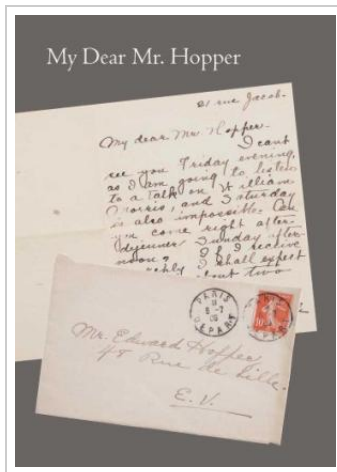 My Dear Mr. Hopper
rue Jacob.
My dear Mr. Hopper.
I cant
see you Friday evening,
as I am going to listen
to a talk on William
Morris, and Saturday
is also impossible. Can
you come right after
dejeuner Sunday after-
noon? If I receive
I shall expect
about two
PARIS
DEPART
10
Mr. Edward Hopper
48 Rue de Lille.
E.V.